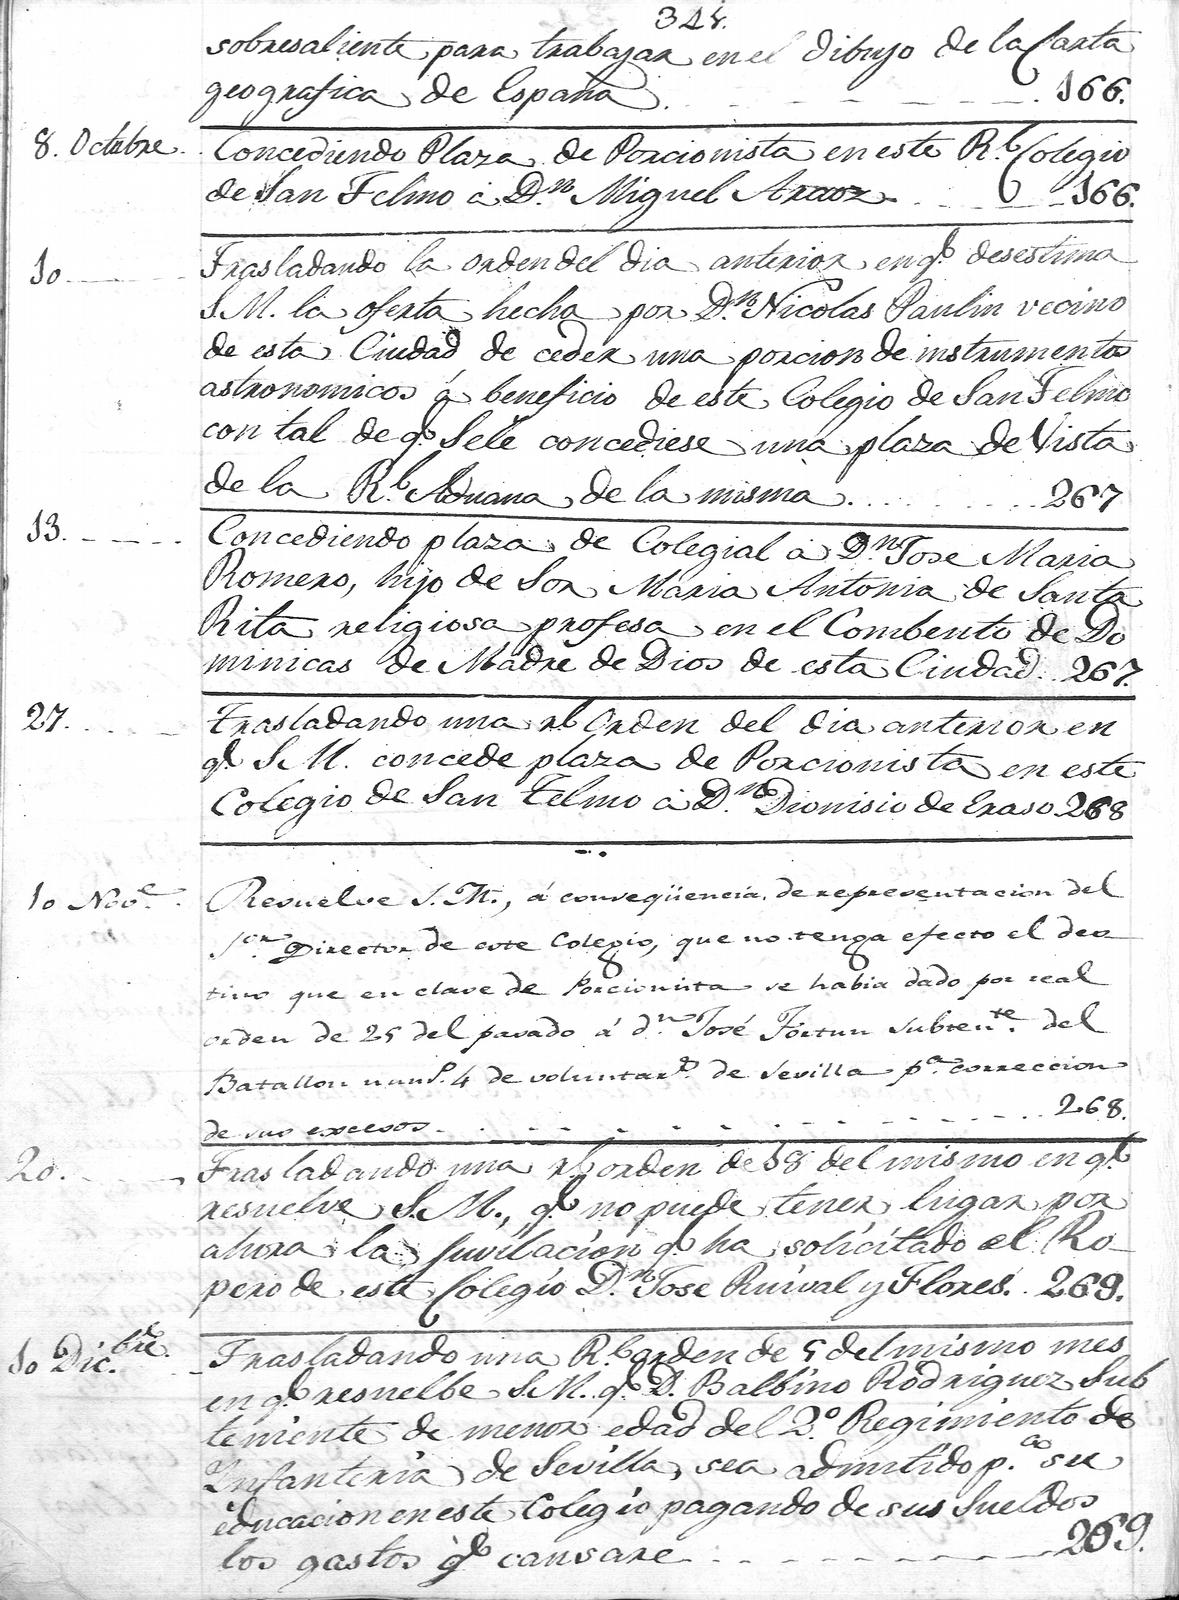 324.
sobresaliente para trabajar en el dibujo de la Carta
geografica de España . . . . . . . 166.
8. Octubre. Concediendo Plaza de Porcionista en este Rl. Colegio
de San Telmo á Dn. Miguel Araoz . . . . 166.
10 Trasladando la orden del dia anterior en q.e desestima
S. M. la oferta hecha por Dn. Nicolas Paulin vecino
de esta Ciudad de ceder una porcion de instrumentos
astronomicos á beneficio de este Colegio de San Telmo
con tal de q.e Sele concediese una plaza de Vista
de la Rl. Aduana de la misma . . . . . . 267
13. Concediendo plaza de Colegial á Dn. Jose Maria
Romero, hijo de Sor Maria Antonia de Santa
Rita religiosa profesa en el Combento de Do
minicas de Madre de Dios de esta Ciudad. . 267.
27. Trasladando una rl. Orden del dia anterior en
q.e S. M. concede plaza de Porcionista en este
Colegio de San Telmo á Dn. Dionisio de Eraso. 268
10 Nov.e Resuelve S. M., á conseqüencia de representacion del
Sor. Director de este Colegio, que no tenga efecto el des
tino que en clase de Porcionista se habia dado por real
orden de 25 del pasado á dn. José Fortun Subten.te del
Batallon num.o 4 de voluntar.s de Sevilla p.a correccion
de sus excesos . . . . . . . . . . 268.
20. Trasladando una rl. orden de 18 del mismo en q.e
resuelve S. M., q.e no puede tener lugar por
ahora la Juvilacion q.e ha solicitado el Ro
pero de este Colegio Dn. Jose Ruival y Flores. . 269.
10 Dic.bre Trasladando una Rl. orden de 5 del mismo mes
en q.e resuelbe S. M. q.e D. Balbino Rodriguez Sub
teniente de menor edad del 2.o Regimiento de
Infanteria de Sevilla, sea admitido p.a su
educacion en este Colegio pagando de sus Sueldos
los gastos q.e causare . . . . . . . 269.